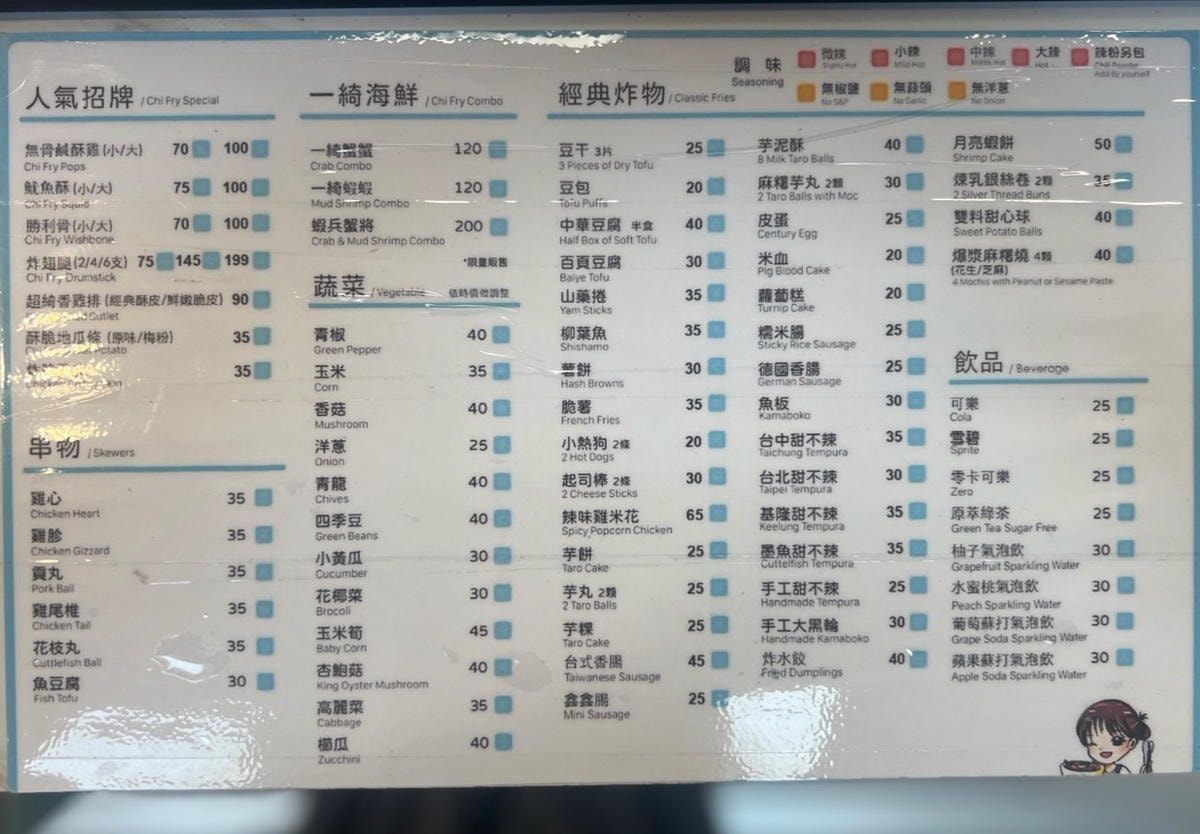 調味 Seasoning
微辣 小辣 中辣 大辣 辣粉另包
Slighty Hot Mild Hot Middle Hot Hot Chili Powder
Add By yourself
無椒鹽 無蒜頭 無洋蔥
No S&P No Garlic No Onion
人氣招牌 / Chi Fry Special
無骨鹹酥雞(小/大) 70 100
Chi Fry Pops
魷魚酥(小/大) 75 100
Chi Fry Squid
勝利骨(小/大) 70 100
Chi Fry Wishbone
炸翅腿(2/4/6支) 75 145 199
Chi Fry Drumstick
超綺香雞排(經典酥皮/鮮嫩脆皮) 90
Cutlet
酥脆地瓜條(原味/梅粉) 35
Potato
35
Chicken
串物 / Skewers
雞心 35
Chicken Heart
雞胗 35
Chicken Gizzard
貢丸 35
Pork Ball
雞尾椎 35
Chicken Tail
花枝丸 35
Cuttlefish Ball
魚豆腐 30
Fish Tofu
一綺海鮮 / Chi Fry Combo
一綺蟹蟹 120
Crab Combo
一綺蝦蝦 120
Mud Shrimp Combo
蝦兵蟹將 200
Crab & Mud Shrimp Combo
*限量販售
蔬菜 / Vegetable 依時價做調整
青椒 40
Green Pepper
玉米 35
Corn
香菇 40
Mushroom
洋蔥 25
Onion
青龍 40
Chives
四季豆 40
Green Beans
小黃瓜 30
Cucumber
花椰菜 30
Brocoli
玉米筍 45
Baby Corn
杏鮑菇 40
King Oyster Mushroom
高麗菜 35
Cabbage
櫛瓜 40
Zucchini
經典炸物 / Classic Fries
豆干 3片 25
3 Pieces of Dry Tofu
豆包 20
Tofu Puffs
中華豆腐 半盒 40
Half Box of Soft Tofu
百頁豆腐 30
Baiye Tofu
山藥捲 35
Yam Sticks
柳葉魚 35
Shishamo
薯餅 30
Hash Browns
脆薯 35
French Fries
小熱狗 2條 20
2 Hot Dogs
起司棒 2條 30
2 Cheese Sticks
辣味雞米花 65
Spicy Popcorn Chicken
芋餅 25
Taro Cake
芋丸 2顆 25
2 Taro Balls
芋粿 25
Taro Cake
台式香腸 45
Taiwanese Sausage
鑫鑫腸 25
Mini Sausage
芋泥酥 40
8 Milk Taro Balls
麻糬芋丸 2顆 30
2 Taro Balls with Moc
皮蛋 25
Century Egg
米血 20
Pig Blood Cake
蘿蔔糕 20
Turnip Cake
糯米腸 25
Sticky Rice Sausage
德國香腸 25
German Sausage
魚板 30
Kamaboko
台中甜不辣 35
Taichung Tempura
台北甜不辣 30
Taipei Tempura
基隆甜不辣 35
Keelung Tempura
墨魚甜不辣 35
Cuttelfish Tempura
手工甜不辣 25
Handmade Tempura
手工大黑輪 30
Handmade Kamaboko
炸水餃 40
Fried Dumplings
月亮蝦餅 50
Shrimp Cake
煉乳銀絲卷 2顆 35
2 Silver Thread Buns
雙料甜心球 40
Sweet Potato Balls
爆漿麻糬燒 4顆 40
(花生/芝麻)
4 Mochis with Peanut or Sesame Paste
飲品 / Beverage
可樂 25
Cola
雪碧 25
Sprite
零卡可樂 25
Zero
原萃綠茶 25
Green Tea Sugar Free
柚子氣泡飲 30
Grapefruit Sparkling Water
水蜜桃氣泡飲 30
Peach Sparkling Water
葡萄蘇打氣泡飲 30
Grape Soda Sparkling Water
蘋果蘇打氣泡飲 30
Apple Soda Sparkling Water